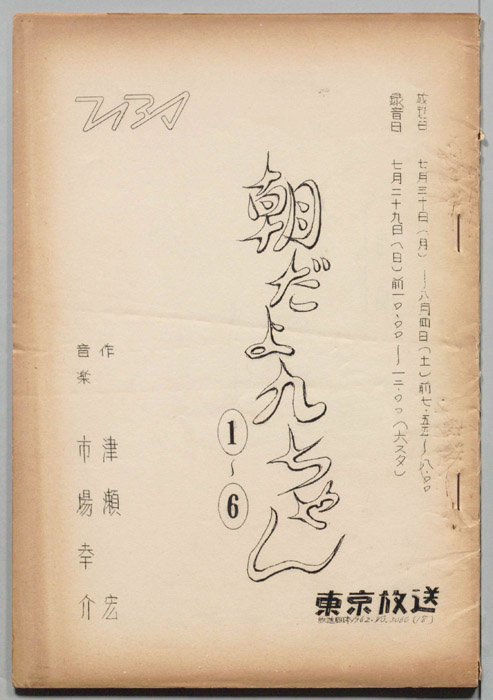 放送日 七月三十日(月)―八月四日(土)前七・五五~八・〇〇
録音日 七月二十九日(日)前一〇・〇〇~一二・〇〇(六スタ)
TBS
朝だよ九ちゃん
1~6
作 津瀬 宏
音楽 市場幸介
東京放送